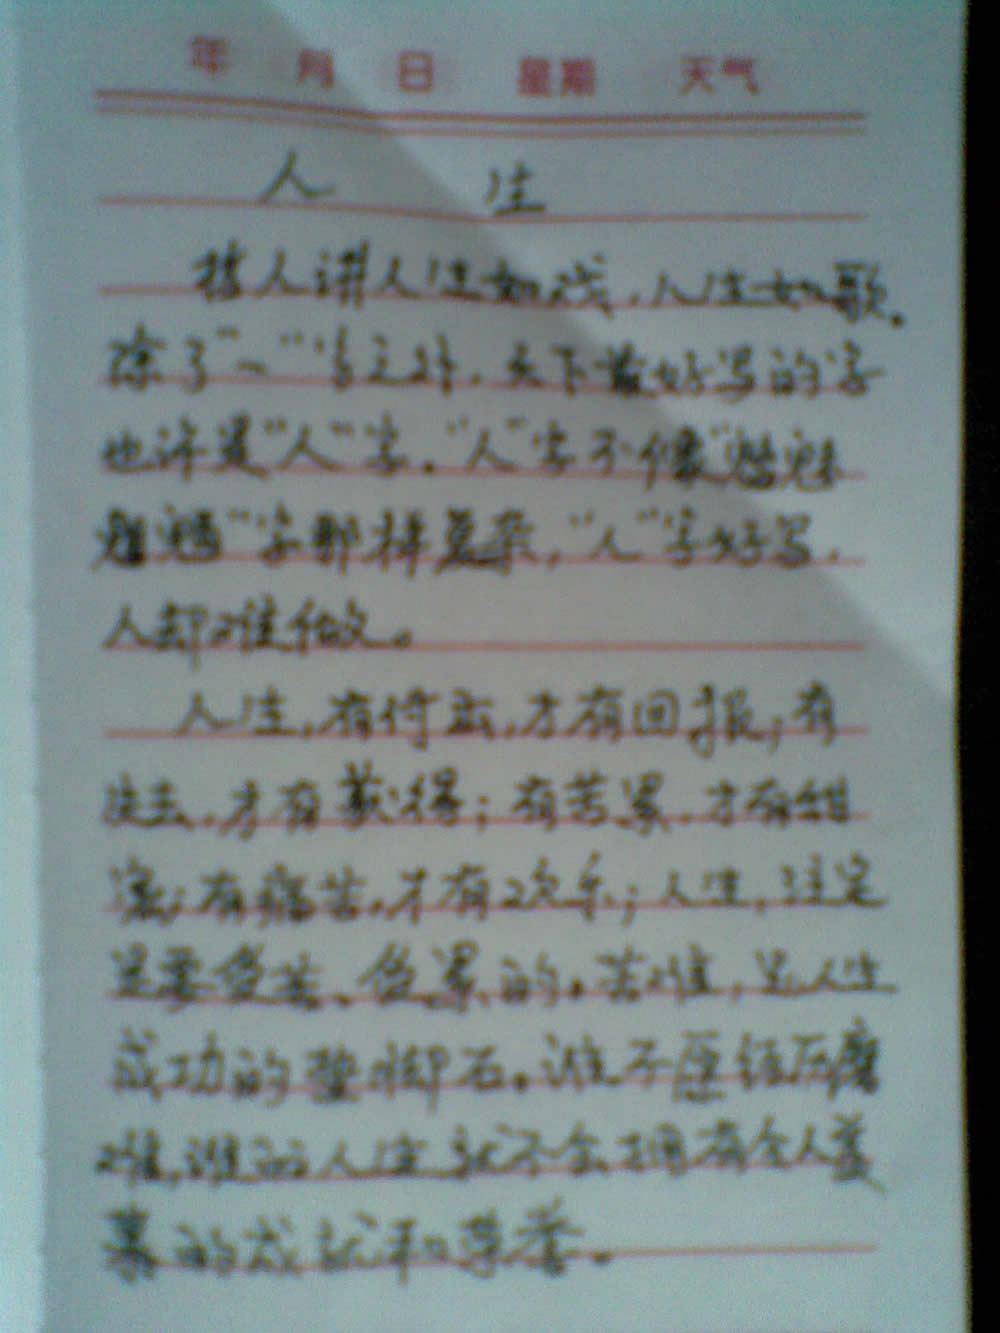 年 月 日 星期 天气
人 生
哲人讲人生如戏，人生如歌。
除了“一”字之外，天下最好写的字
也许是“人”字。“人”字不像“魑魅
魍魉”字那样复杂，“人”字好写，
人却难做。
人生，有付出，才有回报；有
失去，才有获得；有苦累，才有甜
蜜；有痛苦，才有欢乐；人生，注定
是要受苦、受累的。苦难，是人生
成功的垫脚石。谁不愿经历磨
难，谁的人生就不会拥有令人羡
慕的成就和荣誉。